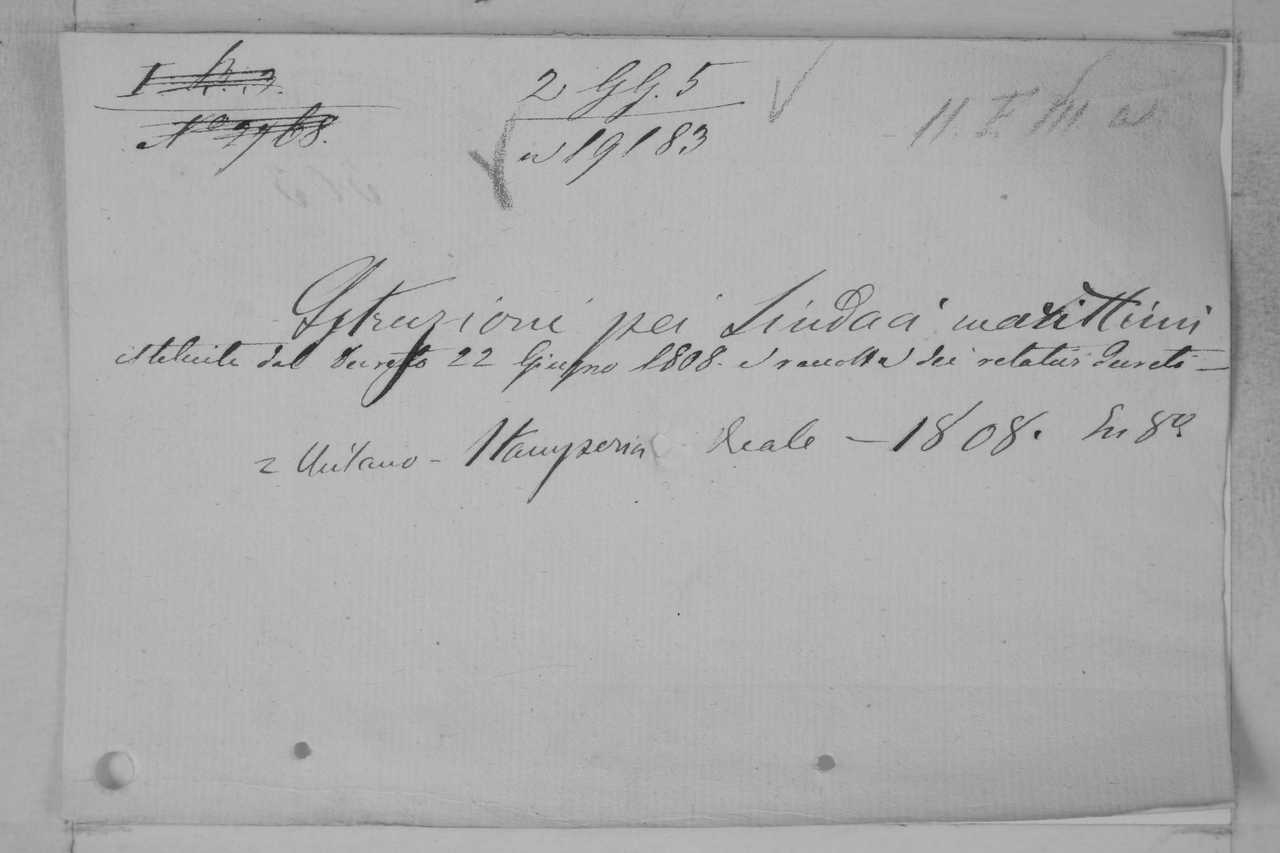 I. h. 3.
N° 2768.
2 GG. 5
n 19183
H. F. M.
Istruzioni pei Sindaci marittimi
istituite dal decreto 22 Giugno 1808. e raccolta dei relativi decreti —
= Milano - Stamperia Reale — 1808. In 8°